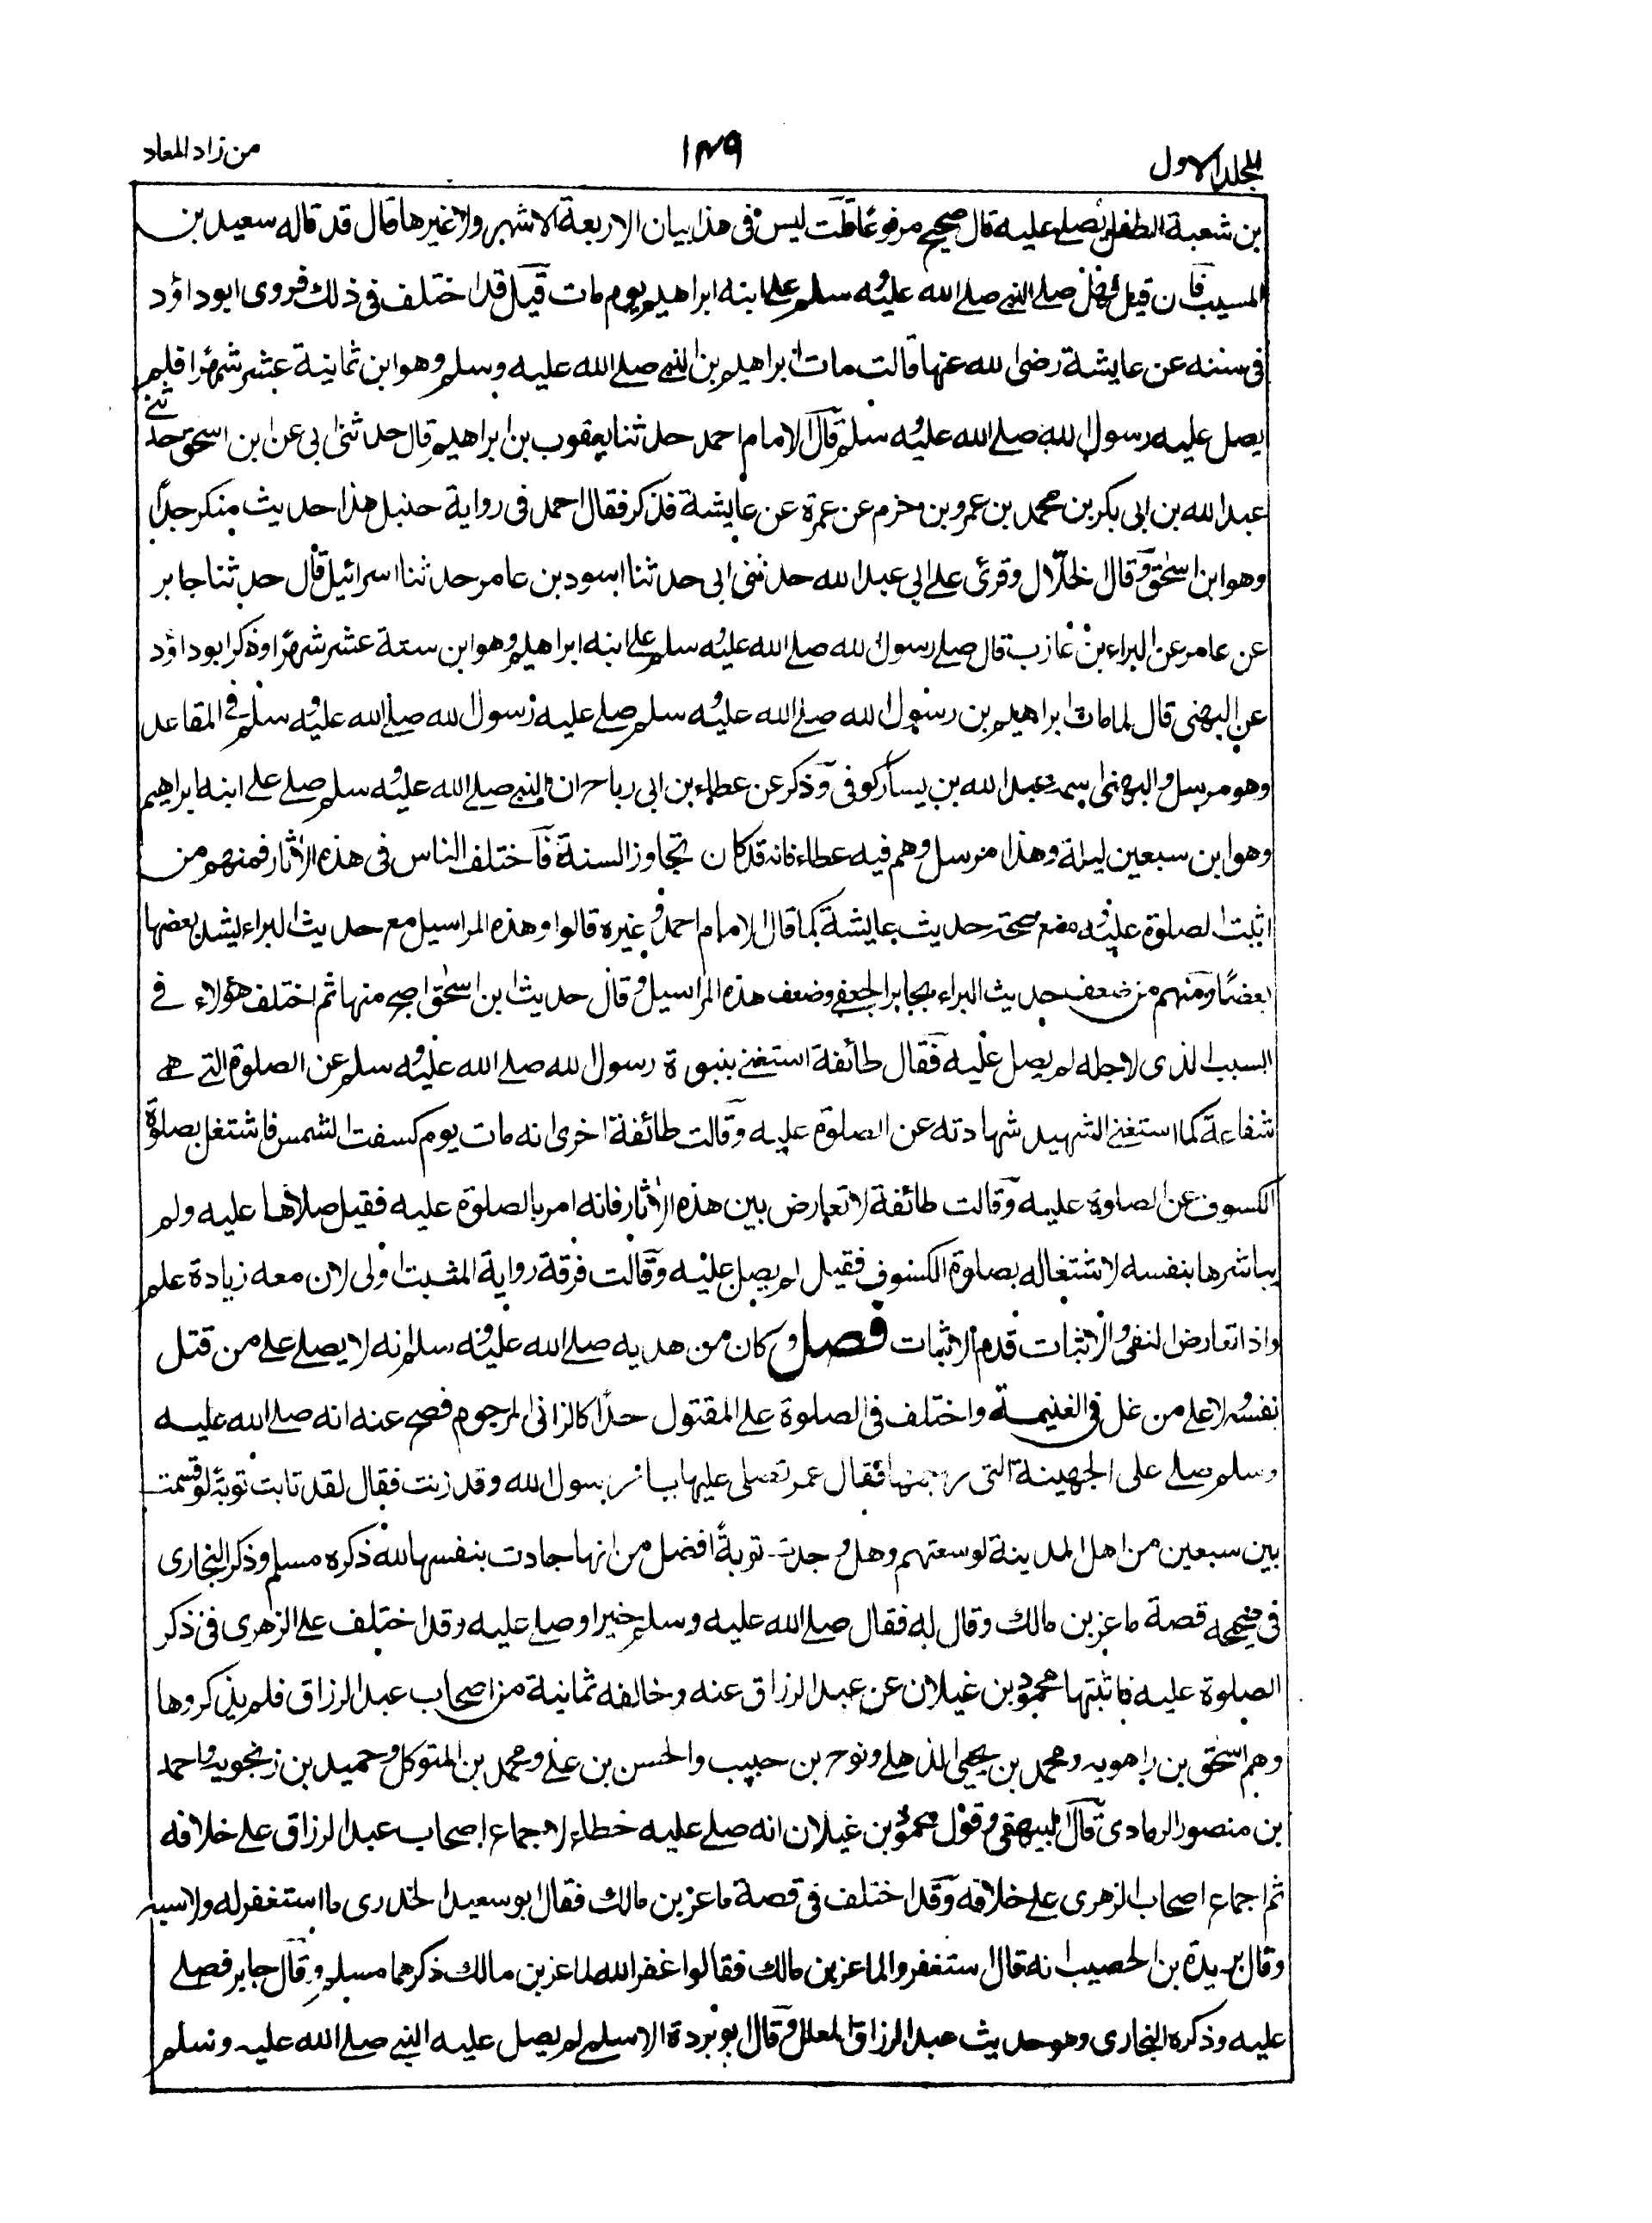 المجلد الاول
١٤٩
من زاد المعاد
بن شعبة الطفل يصلے عليه قال صحيح مرفوعًا قلت ليس فى هذا بيان الاربعة الاشهر ولا غيرها قال قد قاله سعيد بن
المسيب فان قيل فهل صلے النبے صلے الله عليه وسلم علے ابنه ابراهيم يوم مات قيل قد اختلف فى ذلك فروى ابوداؤد
فى سننه عن عايشة رضى الله عنها قالت مات ابراهيم بن النبے صلے الله عليه وسلم وهو ابن ثمانية عشر شهرًا فلم
يصل عليه رسول الله صلے الله عليه وسلم قال الامام احمد حدثنا يعقوب بن ابراهيم قال حدثنى ابى عن ابن اسحق حدثنے
عبد الله بن ابى بكر بن محمد بن عمرو بن حزم عن عمرة عن عايشة فذكر فقال احمد فى رواية حنبل هذا حديث منكر جدًا
وهو ابن اسحٰق وقال الخلّال وقرئ علے ابى عبد الله حدثنى ابى حدثنا اسود بن عامر حدثنا اسرائيل قال حدثنا جابر
عن عامر عن البراء بن عازب قال صلے رسول الله صلے الله عليه وسلم علے ابنه ابراهيم وهو ابن ستة عشر شهرًا وذكر ابوداؤد
عن البهى قال لما مات ابراهيم بن رسول الله صلے الله عليه وسلم صلے عليه رسول الله صلے الله عليه وسلم فے المقاعد
وهو مرسل والبهى اسمه عبد الله بن يسار كوفى وذكر عن عطاء بن ابى رباح ان النبے صلے الله عليه وسلم صلے علے ابنه ابراهيم
وهو ابن سبعين ليلة وهذا مرسل وهم فيه عطاء فانه قد كان تجاوز السنة فاختلف الناس فى هذه الاٰثار فمنهم من
اثبت الصلوة عليه ومنع صحة حديث عايشة كما قال الامام احمد وغيره قالوا وهذه المراسيل مع حديث البراء يشد بعضها
بعضًا ومنهم من ضعف حديث البراء بجابر الجعفے وضعف هذه المراسيل وقال حديث ابن اسحٰق اصح منها ثم اختلف هؤلاء فے
السبب الذى لاجله لم يصل عليه فقال طائفة استغنے بنبوة رسول الله صلے الله عليه وسلم عن الصلوة التے هے
شفاعة كما استغنے الشهيد شهادته عن الصلوة عليه وقالت طائفة اخرى انه مات يوم كسفت الشمس فاشتغل بصلوة
الكسوف عن الصلوة عليه وقالت طائفة لا تعارض بين هذه الاٰثار فانه امر بالصلوة عليه فقيل صلاها عليه ولم
يباشرها بنفسه لاشتغاله بصلوة الكسوف فقيل لم يصل عليه وقالت فرقة رواية المثبت اولى لان معه زيادة علم
واذا تعارض النفى والاثبات قدم الاثبات فصل وكان من هديه صلے الله عليه وسلم انه لا يصلے علے من قتل
نفسه ولا علے من غل فى الغنيمة واختلف فى الصلوة علے المقتول حدًا كالزانى المرجوم فصح عنه انه صلے الله عليه
وسلم صلے على الجهينة التى رجمها فقال عمر تصلى عليها يا رسول الله وقد زنت فقال لقد تابت توبةً لو قسمت
بين سبعين من اهل المدينة لوسعتهم وهل وجدت توبةً افضل من انها جادت بنفسها لله ذكره مسلم وذكر البخارى
فى صحيحه قصة ماعز بن مالك وقال له فقال صلے الله عليه وسلم خيرا وصلے عليه وقد اختلف علے الزهرى فى ذكر
الصلوة عليه فاثبتها محمود بن غيلان عن عبد الرزاق عنه وخالفه ثمانية من اصحاب عبد الرزاق فلم يذكروها
وهم اسحٰق بن راهويه ومحمد بن يحيى الذهلے ونوح بن حبيب والحسن بن علے ومحمد بن المتوكل وحميد بن زنجويه واحمد
بن منصور الرمادى قال البيهقى وقول محمود بن غيلان انه صلے عليه خطاء لاجماع اصحاب عبد الرزاق علے خلافه
ثم اجماع اصحاب الزهرى علے خلافه وقد اختلف فى قصة ماعز بن مالك فقال ابو سعيد الخدرى ما استغفر له ولا سبه
وقال بريدة بن الحصيب انه قال استغفروا لماعز بن مالك فقالوا غفر الله لماعز بن مالك ذكرهما مسلم وقال جابر فصلے
عليه وذكره البخارى وهو حديث عبد الرزاق المعلل وقال ابو بردة الاسلمے لم يصل عليه النبے صلے الله عليه وسلم